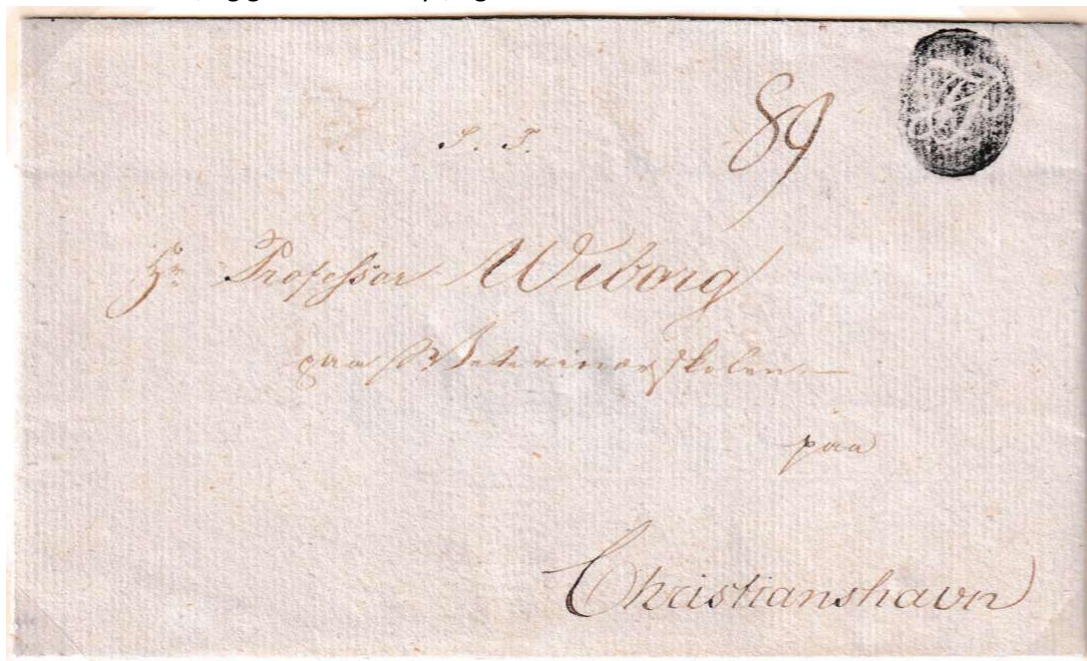 89
S. T.
Hr Professor Wiborg
paa Veterinærskolen
paa
Christianshavn